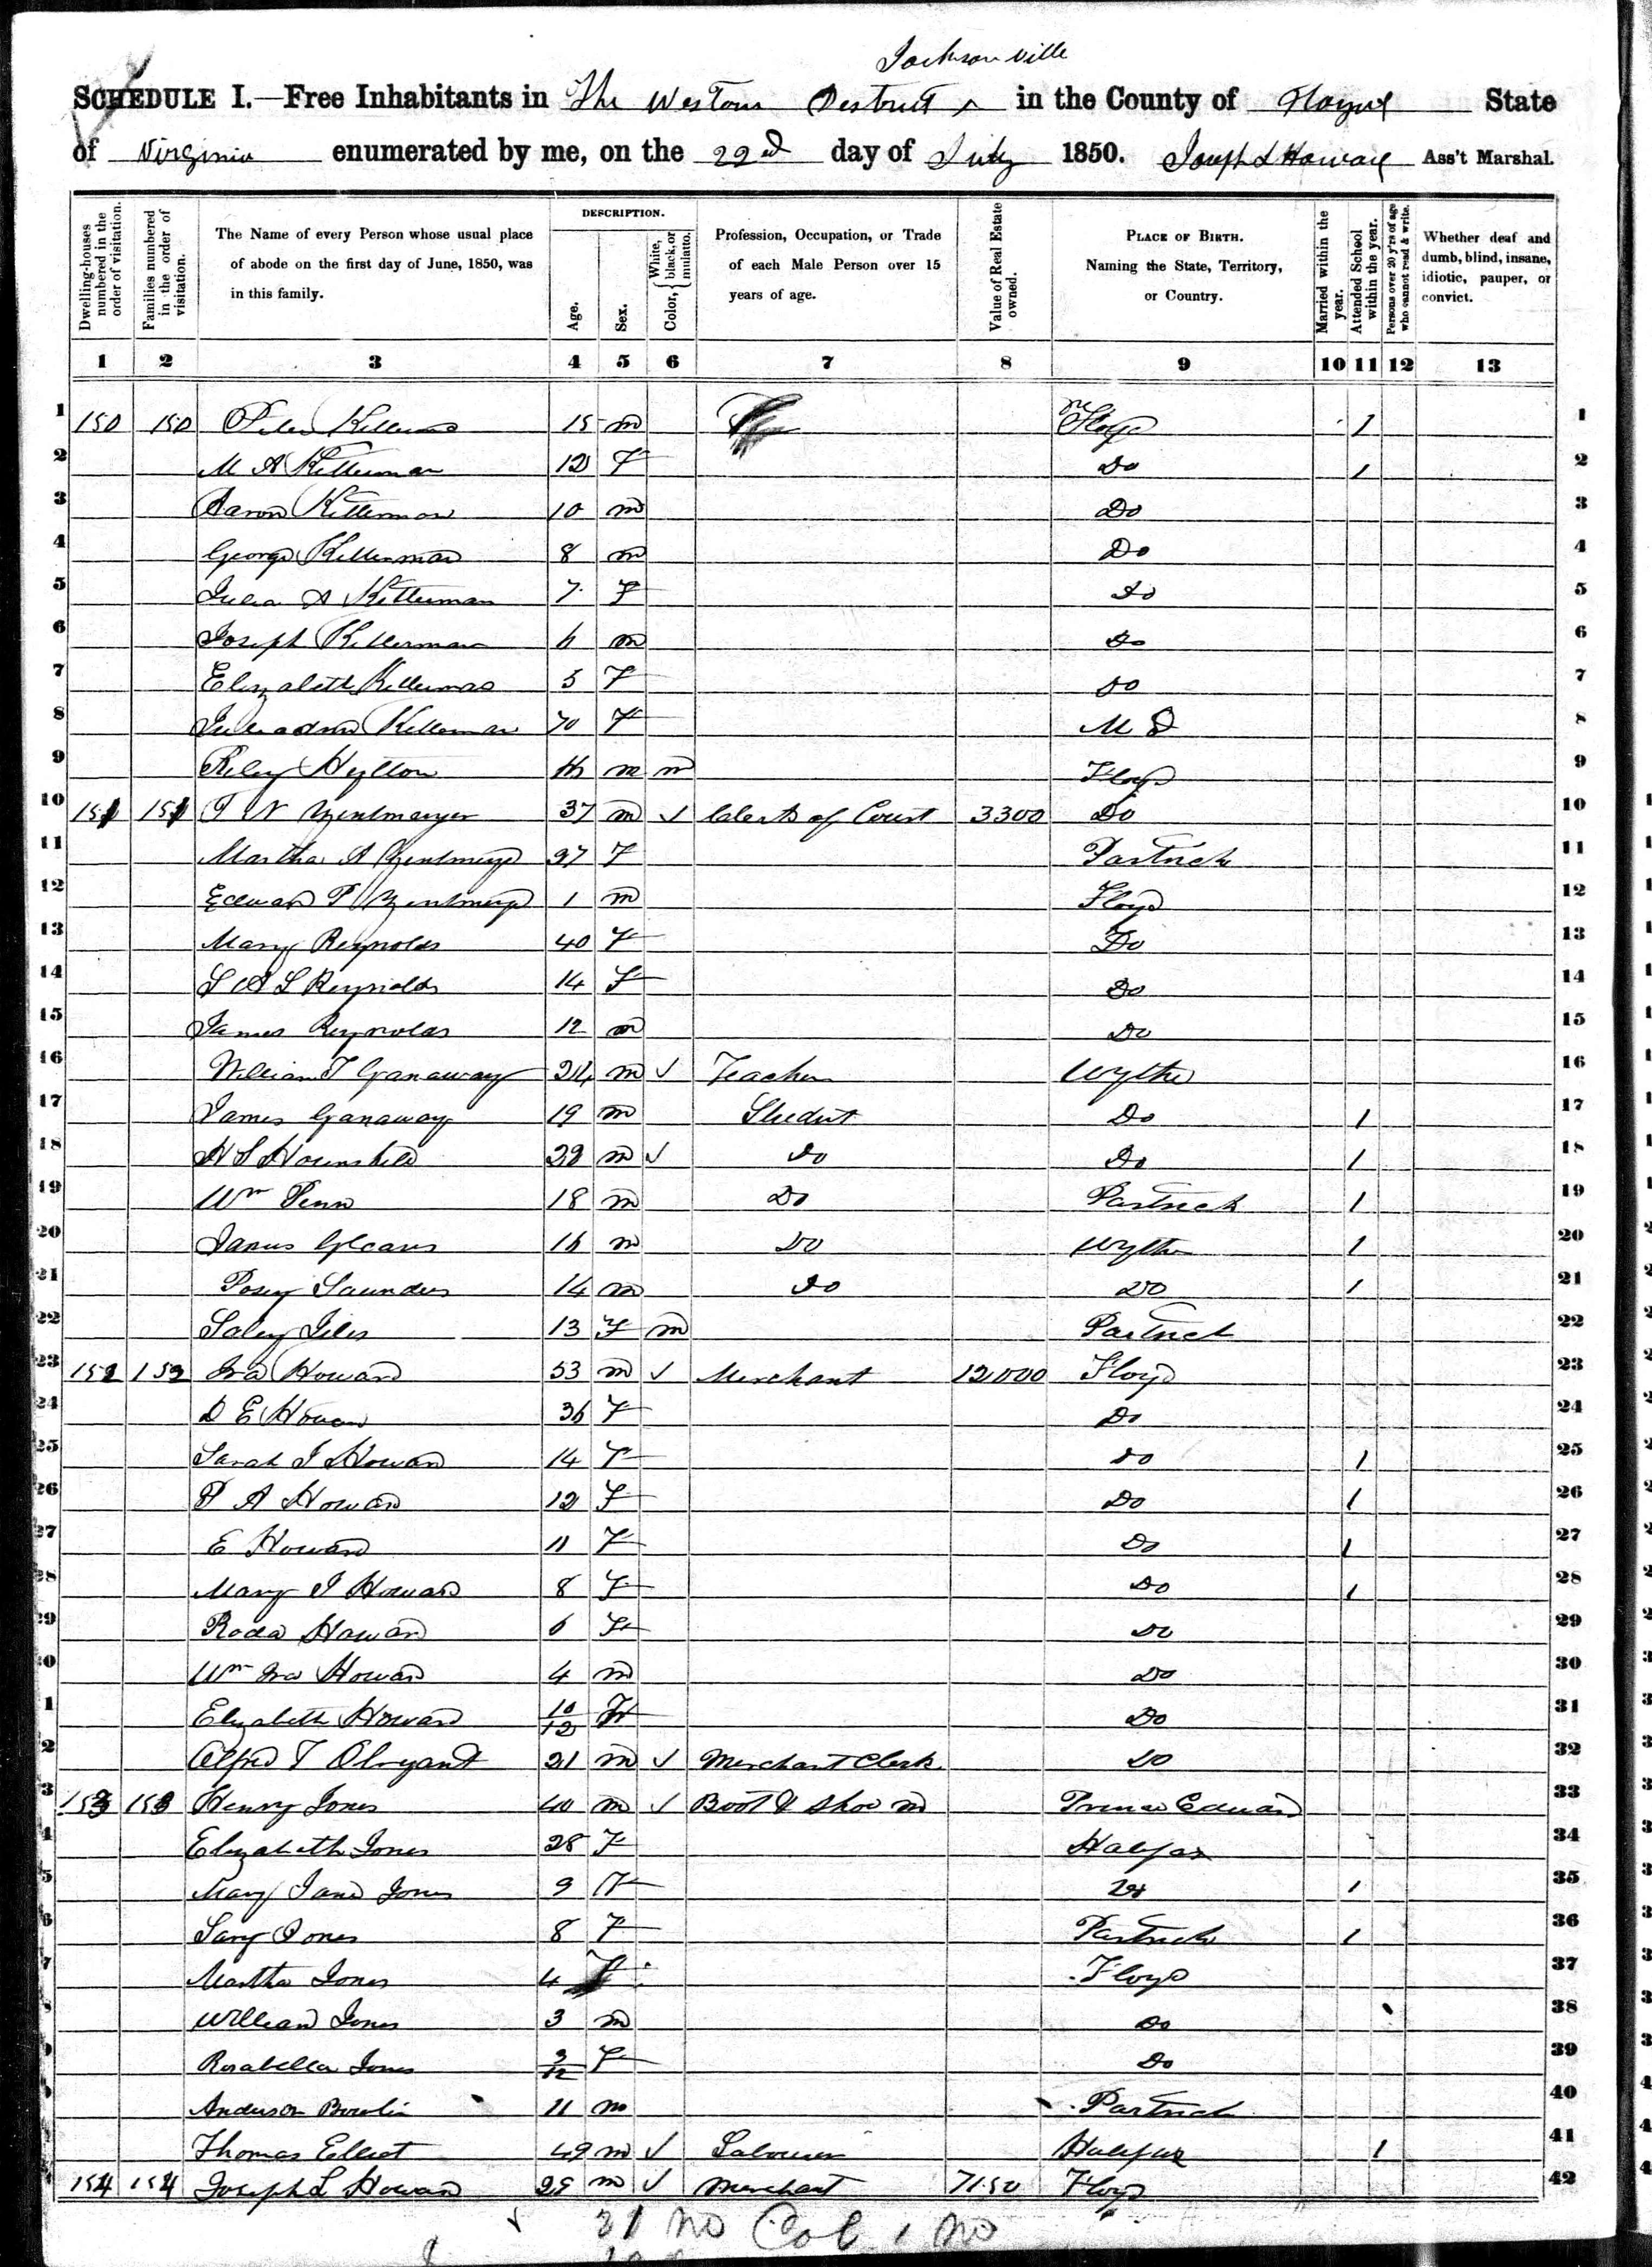 Jacksonville
SCHEDULE I.—Free Inhabitants in The Western District in the County of Floyd State
of Virginia enumerated by me, on the 22nd day of July 1850. Joseph L Howard Ass't Marshal.
Dwelling-houses numbered in the order of visitation.
Families numbered in the order of visitation.
The Name of every Person whose usual place of abode on the first day of June, 1850, was in this family.
DESCRIPTION.
Age.
Sex.
Color, { White, black, or mulatto.
Profession, Occupation, or Trade of each Male Person over 15 years of age.
Value of Real Estate owned.
PLACE OF BIRTH. Naming the State, Territory, or Country.
Married within the year.
Attended School within the year.
Persons over 20 y'rs of age who cannot read & write.
Whether deaf and dumb, blind, insane, idiotic, pauper, or convict.
1 2 3 4 5 6 7 8 9 10 11 12 13
1 150 150 Kitterman 15 m Floyd 1 1
2 M A Kitterman 12 F Do 1 2
3 Aaron Kitterman 10 m Do 3
4 George Kitterman 8 m Do 4
5 Julia A Kitterman 7 F Do 5
6 Joseph Kitterman 6 m Do 6
7 Elizabeth Kitterman 5 F Do 7
8 Kitterman 70 F M D 8
9 Riley Hylton 16 m m Floyd 9
10 151 151 37 m ✓ Clerk of Court 3300 Do 10
11 Martha A 27 F Partrick 11
12 Edward T 1 m Floyd 12
13 Mary Reynolds 40 F Do 13
14 S A L Reynolds 14 F Do 14
15 James Reynolds 12 m Do 15
16 William T Ganaway 24 m ✓ Teacher Wythe 16
17 James Ganaway 19 m Student Do 1 17
18 H S Hounshell m ✓ Do Do 1 18
19 Wm Penn 18 m Do Partrick 1 19
20 James 16 m Do Wythe 1 20
21 Posey Saunders 14 m Do Do 1 21
22 13 F m Partrick 22
23 152 152 Ira Howard 53 m ✓ Merchant 12000 Floyd 23
24 D E Howard 36 F Do 24
25 Sarah J Howard 14 F Do 1 25
26 P A Howard 12 F Do 1 26
27 E Howard 11 F Do 1 27
28 Mary J Howard 8 F Do 1 28
29 Roda Howard 6 F Do 29
30 Wm Ira Howard 4 m Do 30
1 Elizabeth Howard 10/12 F Do 31
2 Alfred T 21 m ✓ Merchant Clerk Do 32
3 153 153 Henry Jones 40 m ✓ Boot & Shoe m Prince Edward 33
4 Elizabeth Jones 28 F Halifax 34
5 Mary Jane Jones 9 F Do 1 35
6 Jones 8 F Partrick 1 36
7 Martha Jones 4 F Floyd 37
8 William Jones 3 m Do 38
9 Rosabella Jones F Do 39
Anderson Bowlin 11 m Partrick 40
Thomas Elliot 49 m ✓ Labourer Halifax 1 41
154 154 Joseph L Howard 29 m ✓ Merchant 7150 Floyd 42
21 m Col 1 m